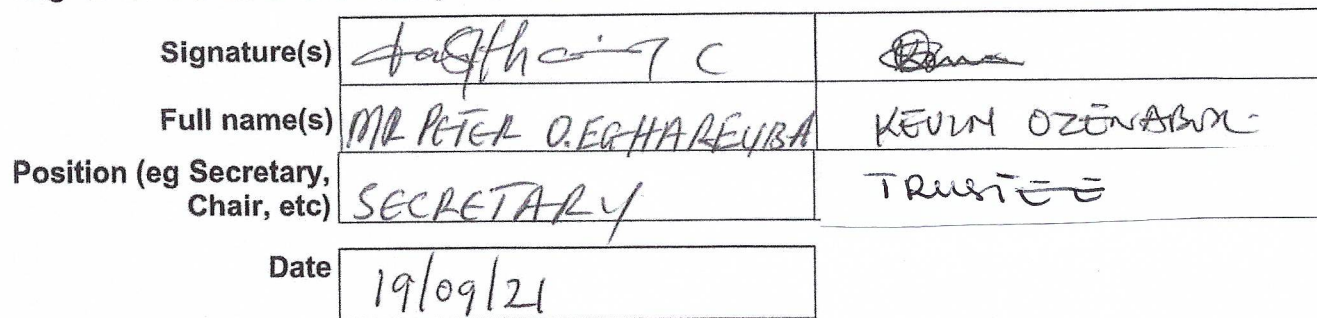 Signature(s)
Full name(s) MR PETER O. EGHAREVBA KEVIN
Position (eg Secretary,
Chair, etc) SECRETARY TRUSTEE
Date 19/09/21